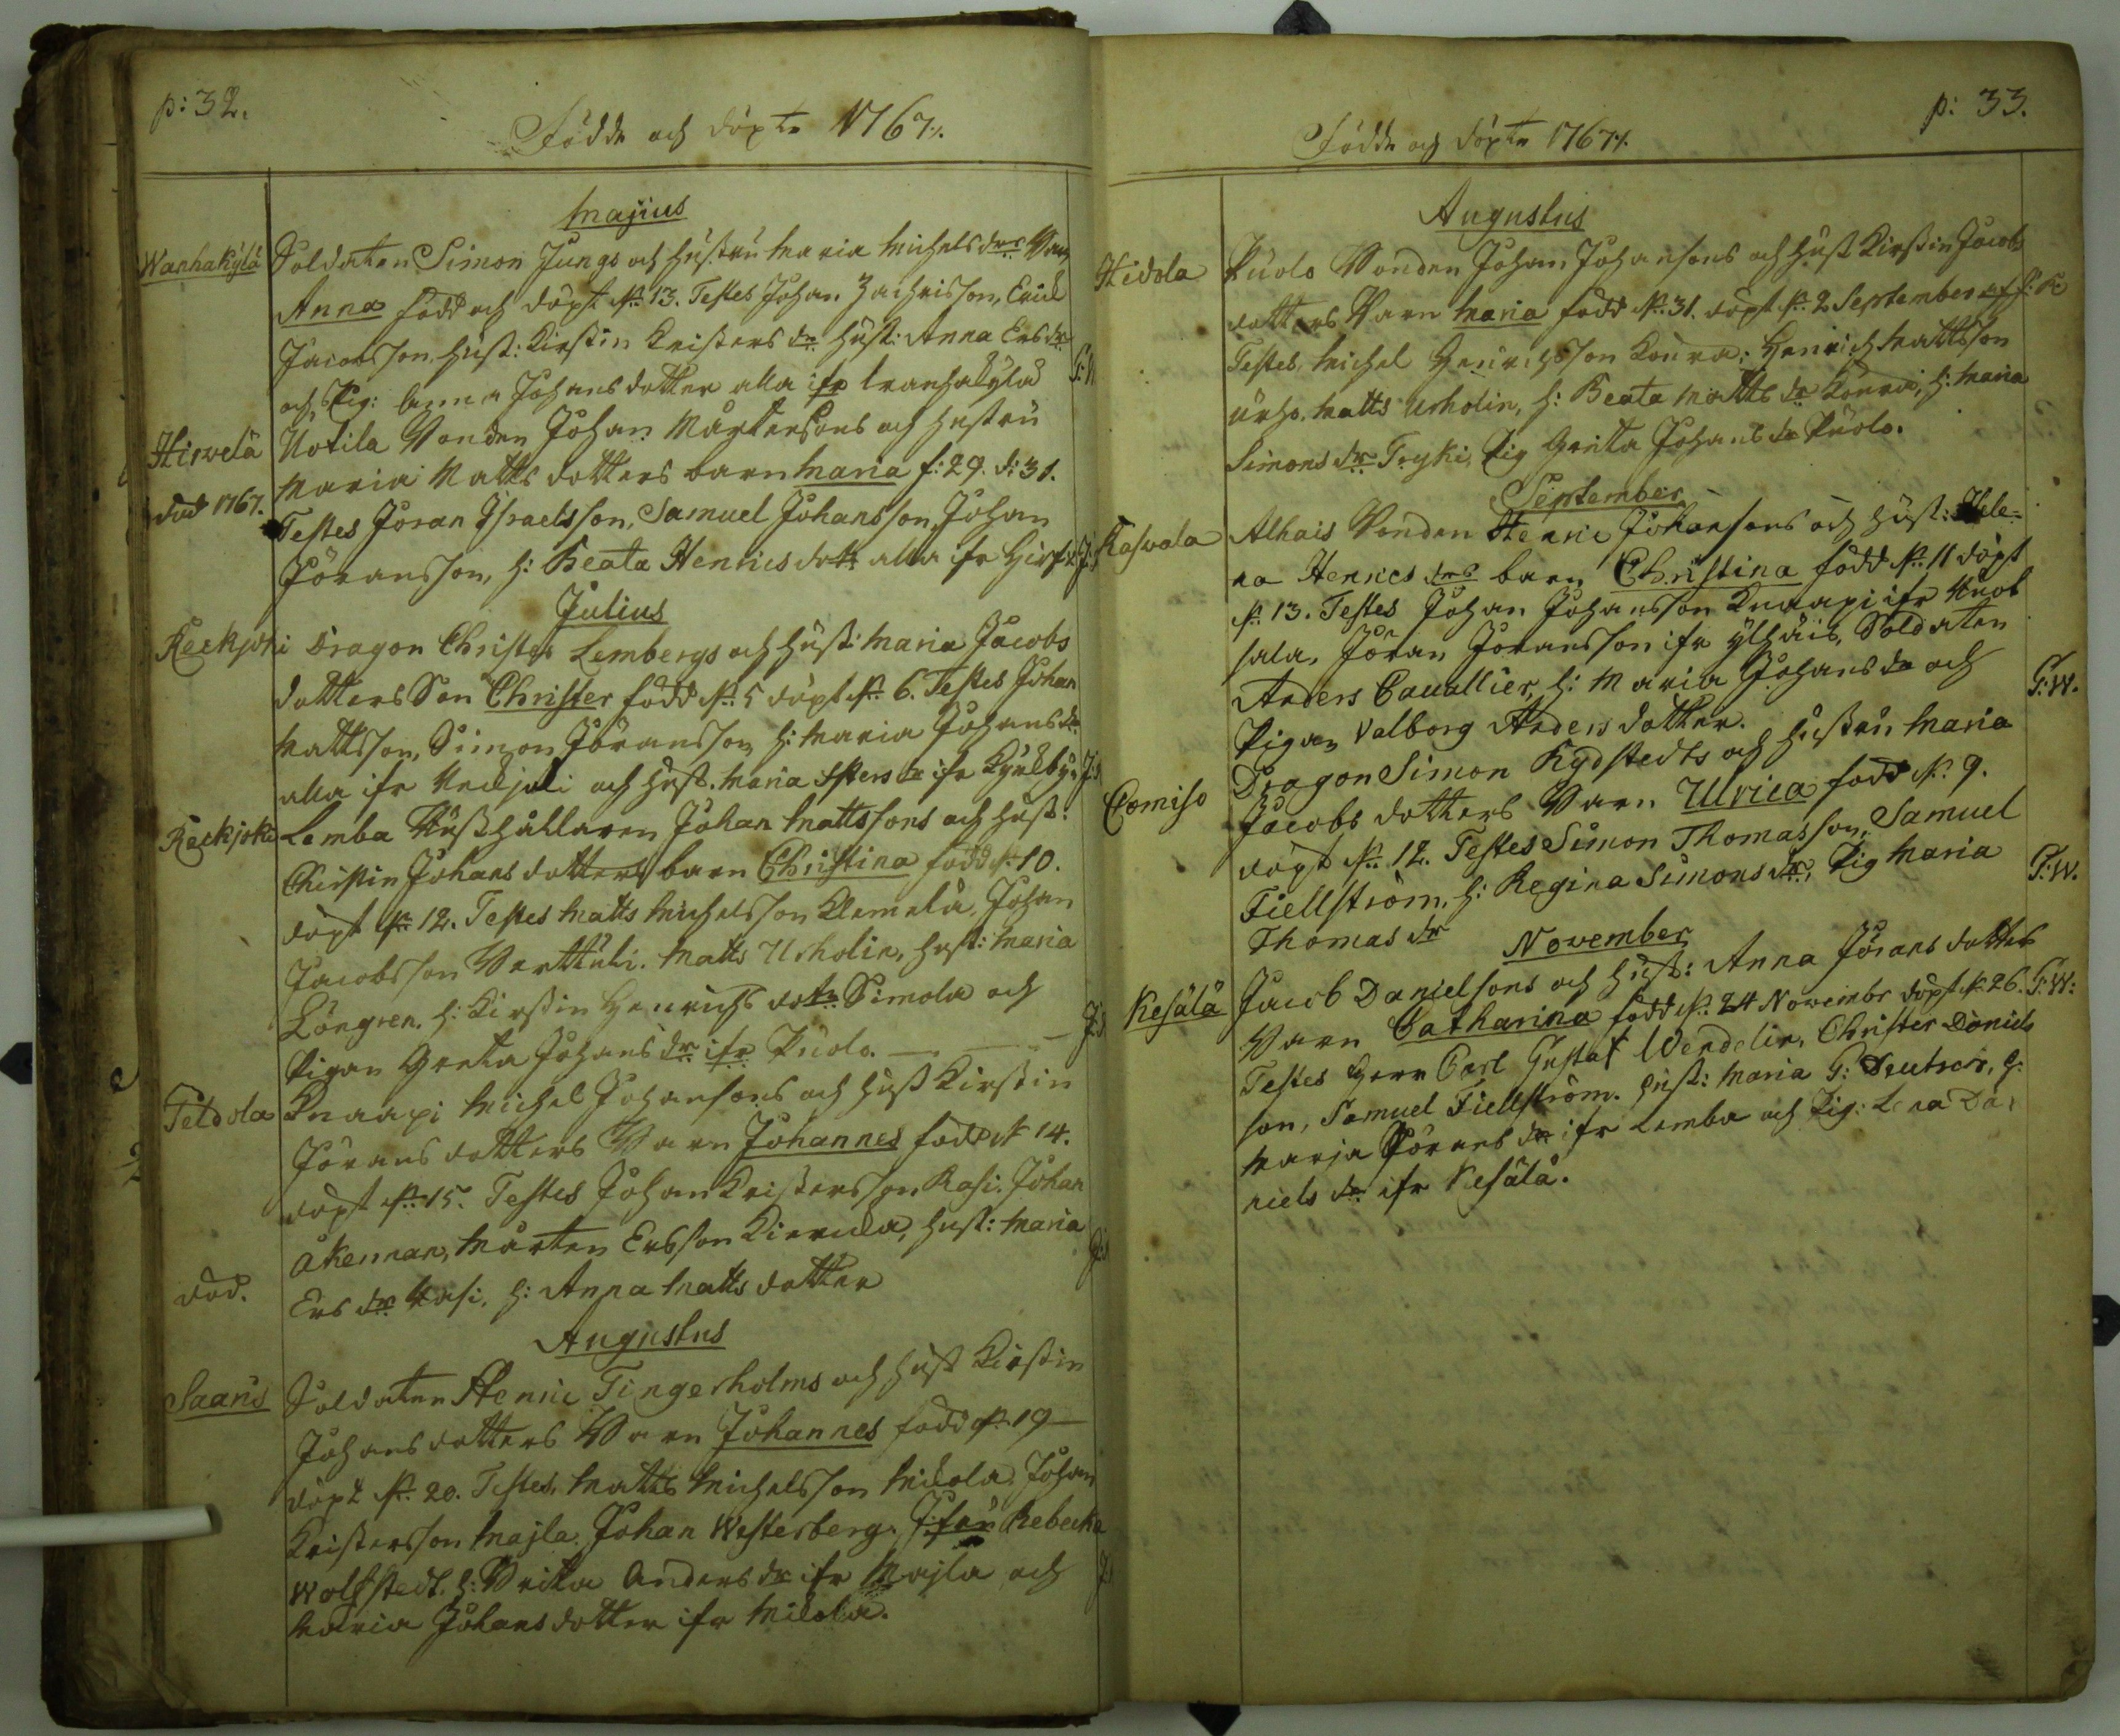 p: 32.
Födde och döpte 1767.
Majus
Wanhakylä Soldaten Simon Jungs och hustru Maria Michelsdrs barn
Anna född och döpt d. 13. Testes Johan Zachrisson, Erich
Jacobsson, hust: Kirstin Kristers dr hust: Anna Ers dr
och Pig: Anna Johansdotter alla ifr Wanhakylä
Hirvelä Uotila Bonden Johan Mårtensons och hustru
Maria Mattsdotters barn Maria f: 29. d: 31.
död 1767. Testes Jöran Israelsson, Samuel Johansson, Johan
Jöransson, h: Beata Henricsdott alla ifr
Julius
Keckjoki Dragon Christer Lembergs och hust: Maria Jacobs
dotters Son Christer född d. 5 döpt d. 6. Testes Johan
Mattsson, Simon Jöransson h: Maria Johansdr
alla ifr Keckjoki och hust. Maria dr ifr
Keckjoki Lemba Rusthållaren Johan Mattssons och hust:
Chirstin Johansdotters barn Christina född d. 10.
döpt d. 12. Testes Matts Michelsson Klemelä, Johan
Jacobsson Perttuli. Matts Urholin, hust: Maria
Löngren. h: Kirstin Henrichs dotr Simola och
Pigan Greta Johansdr ifr Puolo.
Peldola Knaapi Michel Johansons och hust Kirstin
Jöransdotters Barn Johannes född d. 14.
döpt d. 15. Testes Johan Kristersson Rasi. Johan
Åkerman, Mårten Ersson, hust: Maria
död. Ers dr Rasi, h: Anna Mattsdotter
Augustus
Saaris Soldaten Henric Tingerholms och hust Kirstin
Johansdotters Barn Johannes född d. 19
döpt d. 20. Testes. Matts Michelsson Mickola, Johan
Kristersson Majla. Johan Westerberg. Jfru Rebecka
Wolfstedt. h: Brita Anders dr ifr Majla och
Maria Johansdotter ifr Mickola.
p: 33.
Födde och döpte 1767.
Augustus
Hidola Puolo Bonden Johan Johansons och hust Kirstin Jacobs
dotters Barn Maria född d. 31. döpt d. 2 September
Testes, Michel Henrichsson Koura: Henrich Mattsson
Matts Urholin, h: Beata Matts dr Koura, h: Maria
Simons dr Tryki, Pig Greta Johans dr Puolo.
September
Raswala Alhais Bonden Henric Johansons och hust: Hele-
na Henrics drs barn Christina född d. 11 döpt
d. 13. Testes Johan Johansson Knaapi ifr
sala, Jöran Joransson ifr Ylhäis, Soldaten
Anders Cavallier, h: Maria Johans dr och
Pigan Valborg Andersdotter. G: W.
Comiso Dragon Simon Rydstedts och hustru Maria
Jacobs dotters Barn Ulrica född d. 9.
döpt d. 12. Testes Simon Thomasson, Samuel
Fiellström, h: Regina Simonsdr, Pig Maria G: W.
Thomas dr
November
Kesälä Jacob Danielsons och hust: Anna Jöransdotters
Barn Catharina född d. 24 November döpt d. 26. G: W:
Testes Herr Carl Gustaf Wendelin, Christer Daniels
son, Samuel Fiellström. hust: Maria G: Deutsch, h:
Marja Jörans dr ifr Lemba och Pig: Lena Da-
niels dr ifr Kesälä.